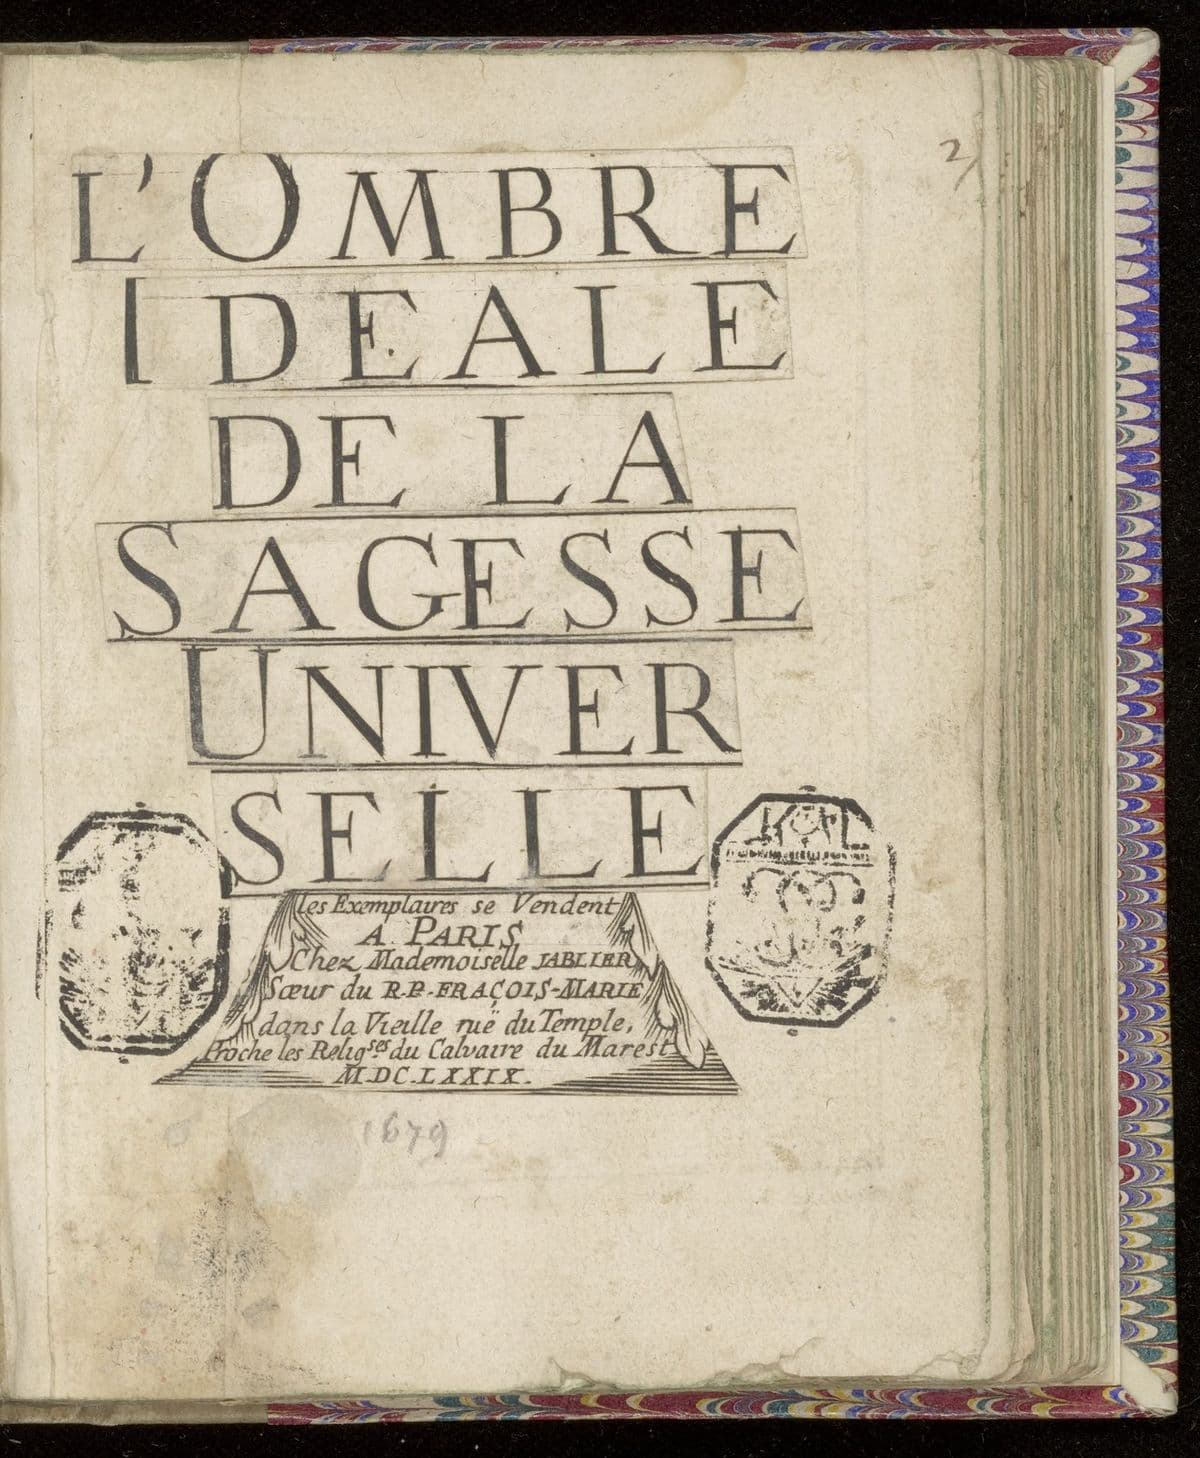 2
L'OMBRE
IDEALE
DE LA
SAGESSE
UNIVER
SELLE
les Exemplaires se Vendent
A PARIS
Chez Mademoiselle JABLIER
Sœur du R.P. FRAÇOIS-MARIE
dans la Vieille ruë du Temple,
Proche les Religses du Calvaire du Marest
M.DC.LXXIX.
1679